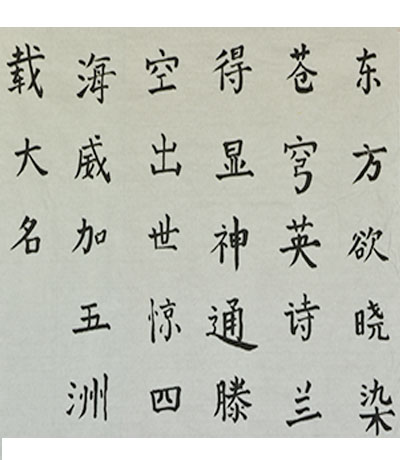 东方欲晓染
苍穹英诗兰
得显神通滕
空出世惊四
海威加五洲
载大名